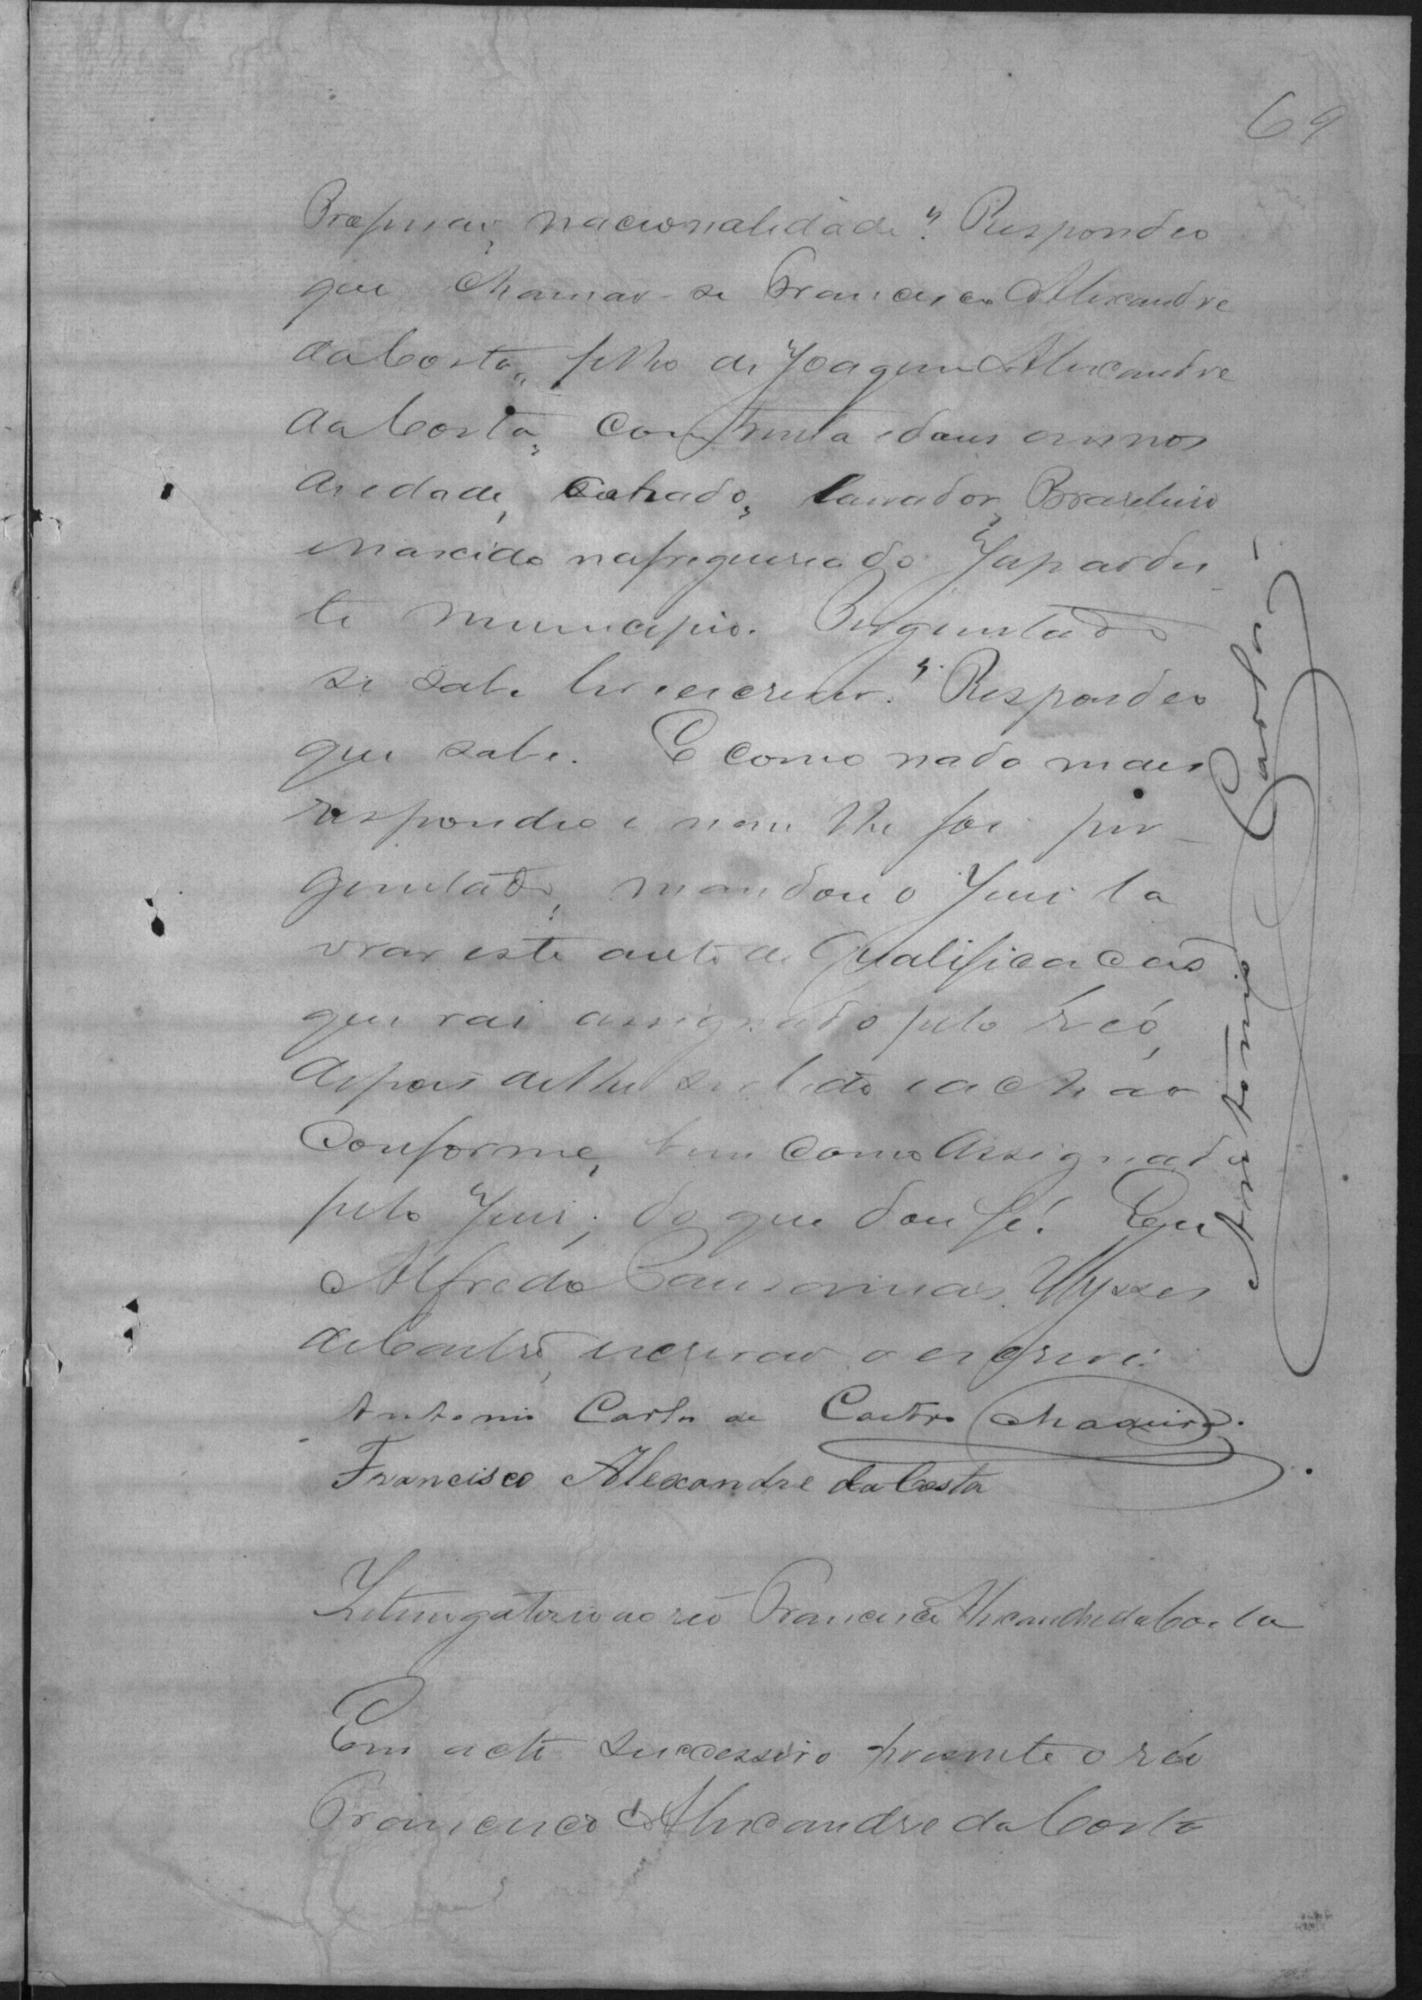 69
Profissão, nacionalidade? Respondeo
que chamar-se Francisco Alexandre
da Costa, filho de Joaquim Alexandre
da Costa, com trinta e dous annos
de edade, casado, lavrador, Brasileiro
e nascido na freguesia do Japardes
te municipio. Perguntado
se sabe ler e escrever? Respondeo
que sabe. E como nada mais
respondeo e nem lhe foi per-
guntado, mandou o Juiz la
vrar este auto de qualificacão
que vai assignado pelo réo,
depois de lhe ser lido e achar
conforme, bem como assignado
pelo Juiz; do que dou fé. Eu
Alfredo Ulysses
de Castro, escrivão o escrevi.
Antonio Carlos de Castro Madeira.
Francisco Alexandre da Costa
Antonio Carlos
Interrogatorio ao réo Francisco Alexandre da Costa
Em acto successivo presente o réo
Francisco Alexandre da Costa